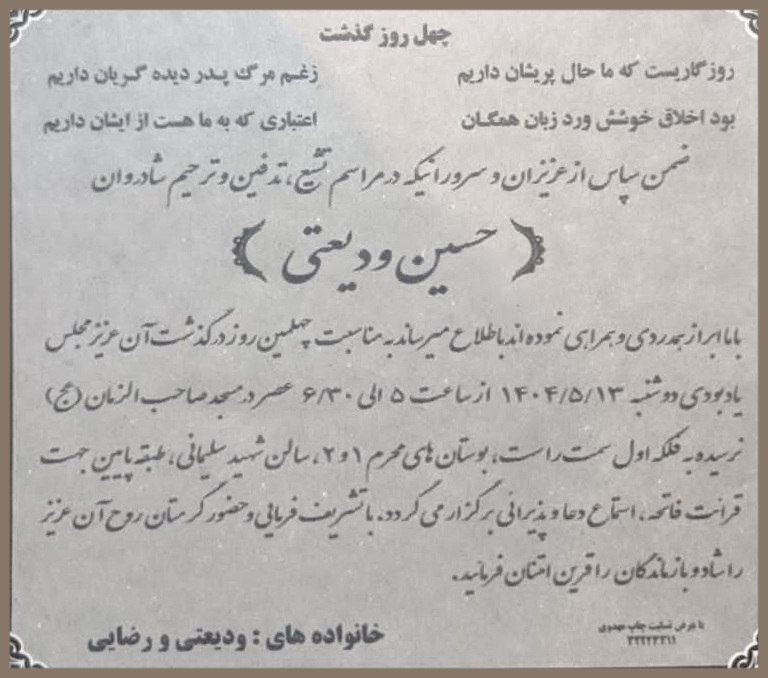 چهل روز گذشت
روزگاریست که ما حال پریشان داریم زغم مرگ پدر دیده گریان داریم
بود اخلاق خوشش ورد زبان همگان اعتباری که به ما هست از ایشان داریم
ضمن سپاس از عزیزان و سرورانیکه در مراسم تشییع، تدفین و ترحیم شادروان
حسین ودیعتی
باما ابراز همدردی و همراهی نموده اند باطلاع میرساند به مناسبت چهلمین روز درگذشت آن عزیز مجلس
یادبودی دوشنبه ۱۴۰۴/۵/۱۳ از ساعت ۵ الی ۶/۳۰ عصر در مسجد صاحب الزمان (عج)
نرسیده به فلکه اول سمت راست، بوستان های محرم ۱ و ۲، سالن شهید سلیمانی، طبقه پایین جهت
قرائت فاتحه، استماع دعا و پذیرائی برگزار می گردد. با تشریف فرمایی و حضور گرمتان روح آن عزیز
را شاد و بازماندگان را قرین امتنان فرمائید.
خانواده های : ودیعتی و رضایی
با عرض تسلیت چاپ مهدوی